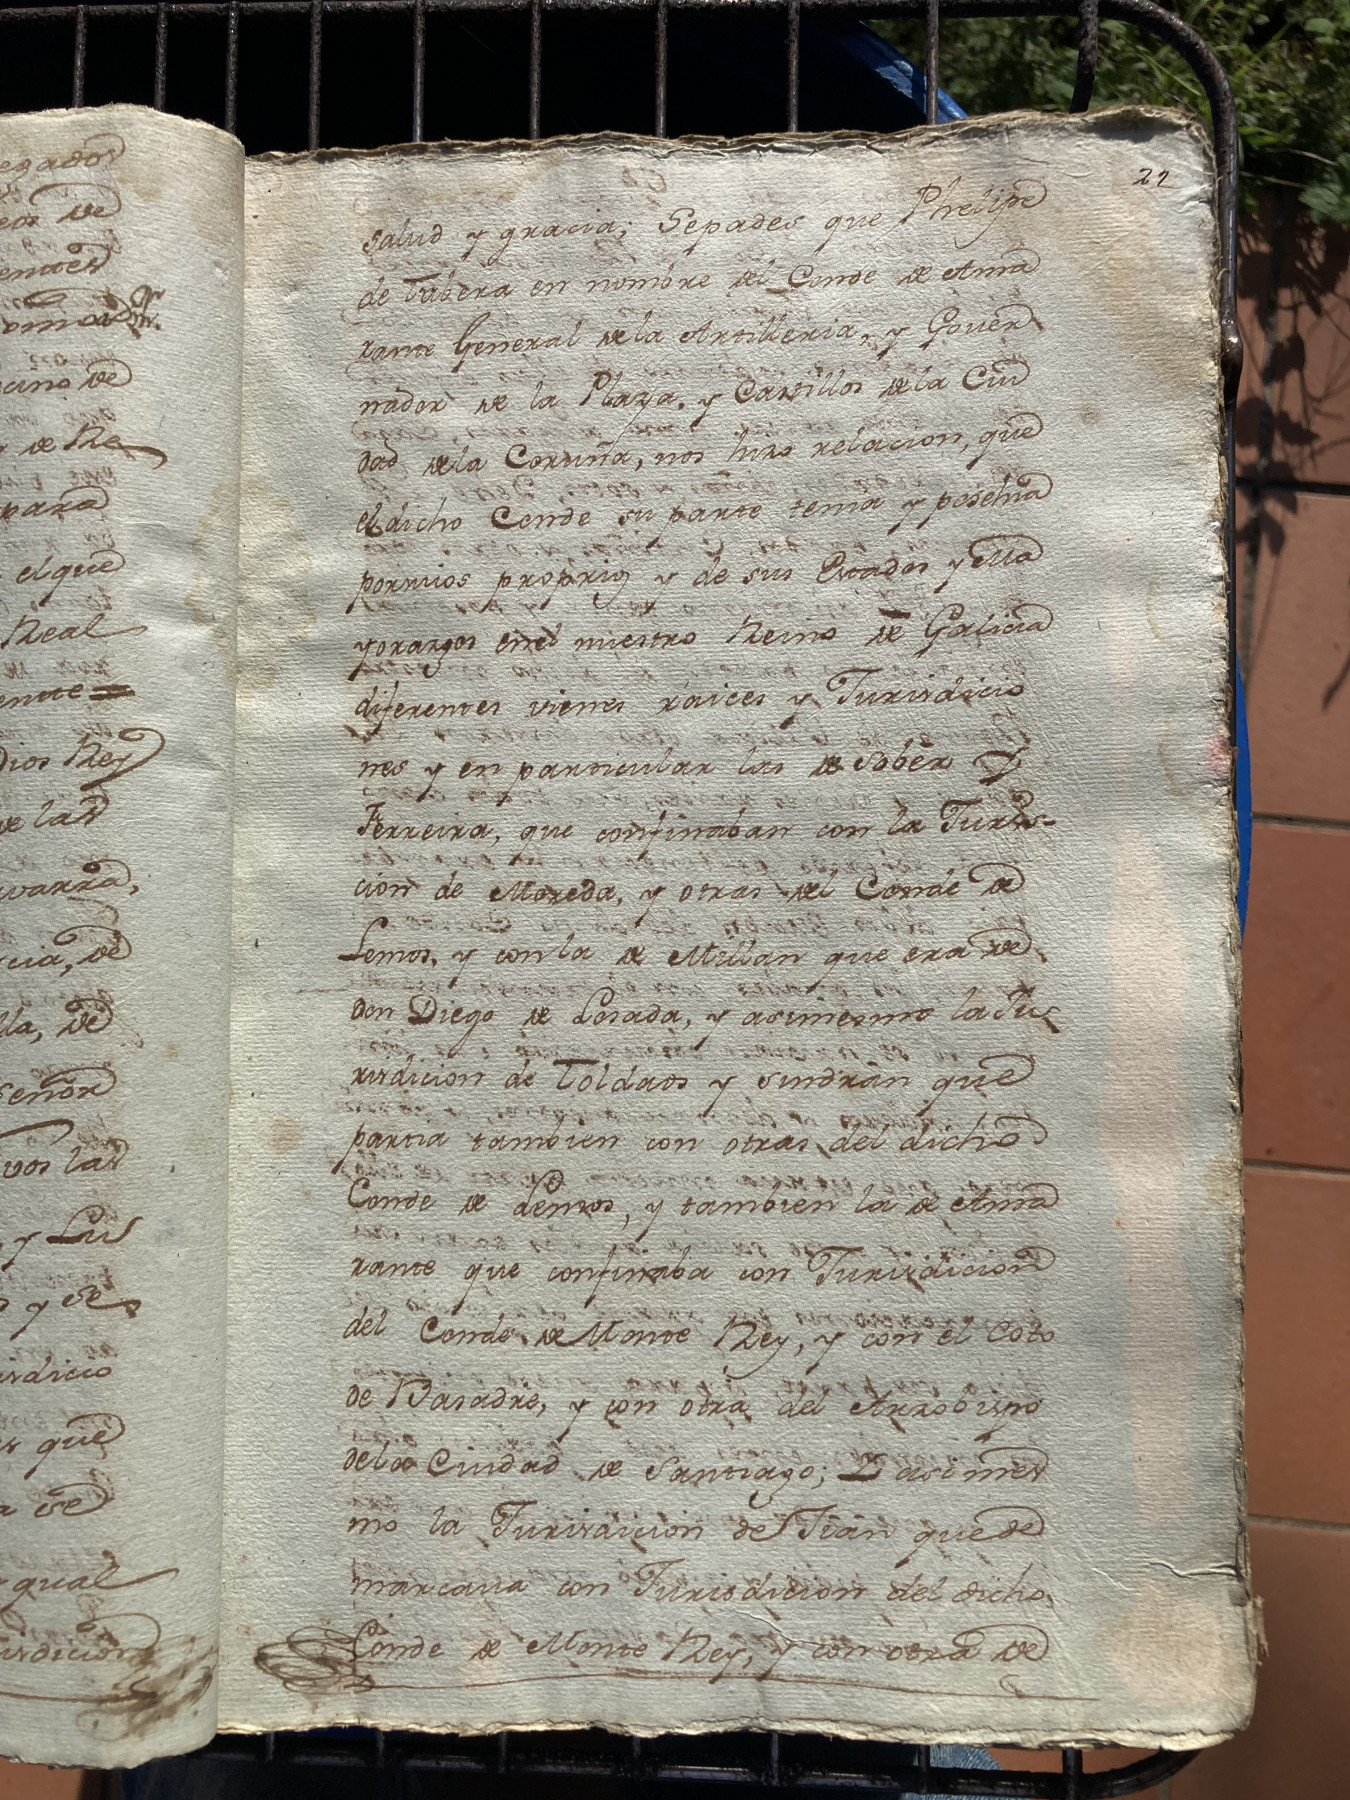 egados
eos de
entes
cino de
de Re
para
el que
Real
ente =
Dios Rey
de las
avarra,
rcia, de
lla, de
señor
vos las
y Luis
y se
urisdicio
que
se
qual
urisdicion
22
salud y gracia; Sepades que Phelipe
de Tabera en nombre del Conde de Ama
rante General de la Artilleria, y Gover
nador de la Plaza, y Castillos de la Ciu
dad de la Coruña, nos hizo relacion, que
el dicho Conde su parte tenia y posehia
por suios proprios y de sus Estados y Ma
yorazgos en el nuestro Reino de Galicia
diferentes vienes raices y Jurisdicio
nes y en particular las de Sober y
Ferreira, que confinaban con la Juris
cion de Moreda, y otras del Conde de
Lemos, y con la de Millan que era de
don Diego de Losada, y asimesmo la Ju
risdicion de Toldaos y Sindran que
partia tambien con otras del dicho
Conde de Lemos, y tambien la de Ama
rante que confinaba con Jurisdicion
del Conde de Monte Rey, y con el Coto
de Basadre, y con otra del Arzobispo
de la Ciudad de Santiago; Y asimes
mo la Jurisdicion de Sian que de
marcava con Jurisdicion del dicho
Conde de Monte Rey, y con otra de